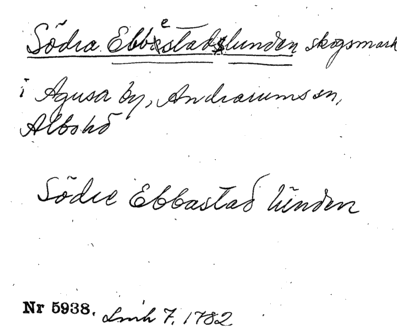 Södra Ebbestadslunden skogsmark
i Agusa by, Andrarums sn,
Albo hd
Södre Ebbastad lünden
Nr 5938. Lmh 7. 1782